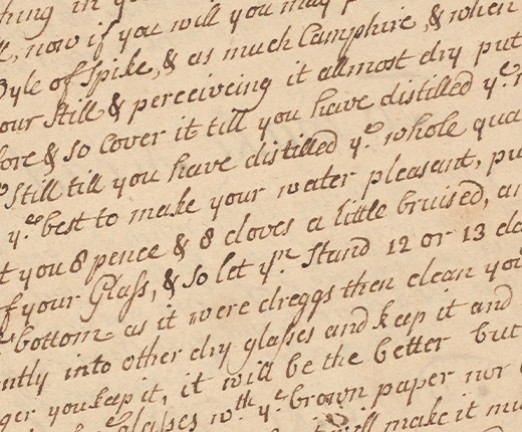 thing in yo
ll, now if you will you may p
Oyle of Spike, & as much Camphire, & when
our Still & perceiveing it allmost dry put
fore & so Cover it till you have distilled y.e
Still till you have distilled y.e whole qua
y.e best to make your water pleasant, pu
t you 8 pence & 8 cloves a little bruised, an
f your Glass, & so let y.m Stand 12 or 13 da
bottom as it were dreggs then clean you
ntly into other dry glasses and keep it and
ger you keep it, it will be the better but
glasses w.th y.e brown paper nor
will make it mu